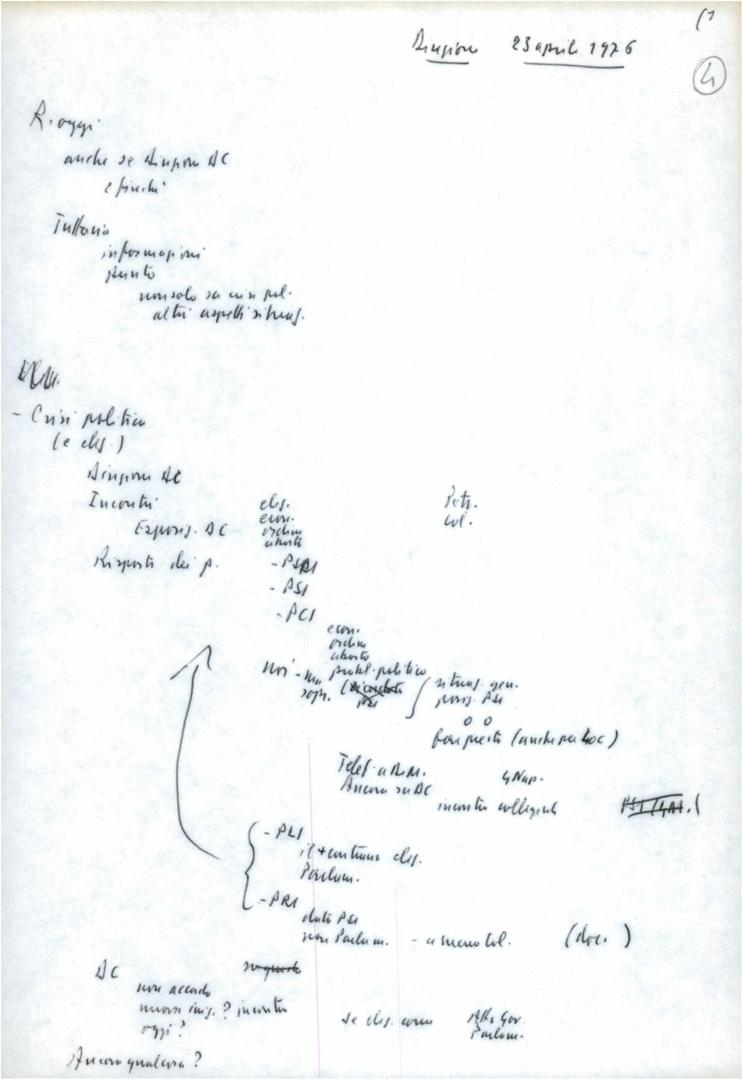 (1
Direzione 23 aprile 1976
4
R. oggi
anche se Direzione DC
e finché
Tuttavia
informazioni
punto
non solo su crisi pol.
altri aspetti situaz.
- Crisi politica
(e elez.)
Direzione DC
Incontri elez.
econ.
Esposiz. DC ordine
aborto
Risposte dei p. - PSDI
- PSI
- PCI
econ.
ordine
aborto
noi - ma probl. politico
sopr. situaz. gen.
posiz. PSI
(anche per DC)
Telef. a
Ancora su DC
incontro collegiale
- PLI
il + contrario elez.
Parlam.
- PRI
PSI
non Parlam. - a meno col. (doc. )
DC
non accordo
nuova iniz. ? incontro
oggi ? se elez. come Gov.
Parlam.
Ancora qualcosa ?